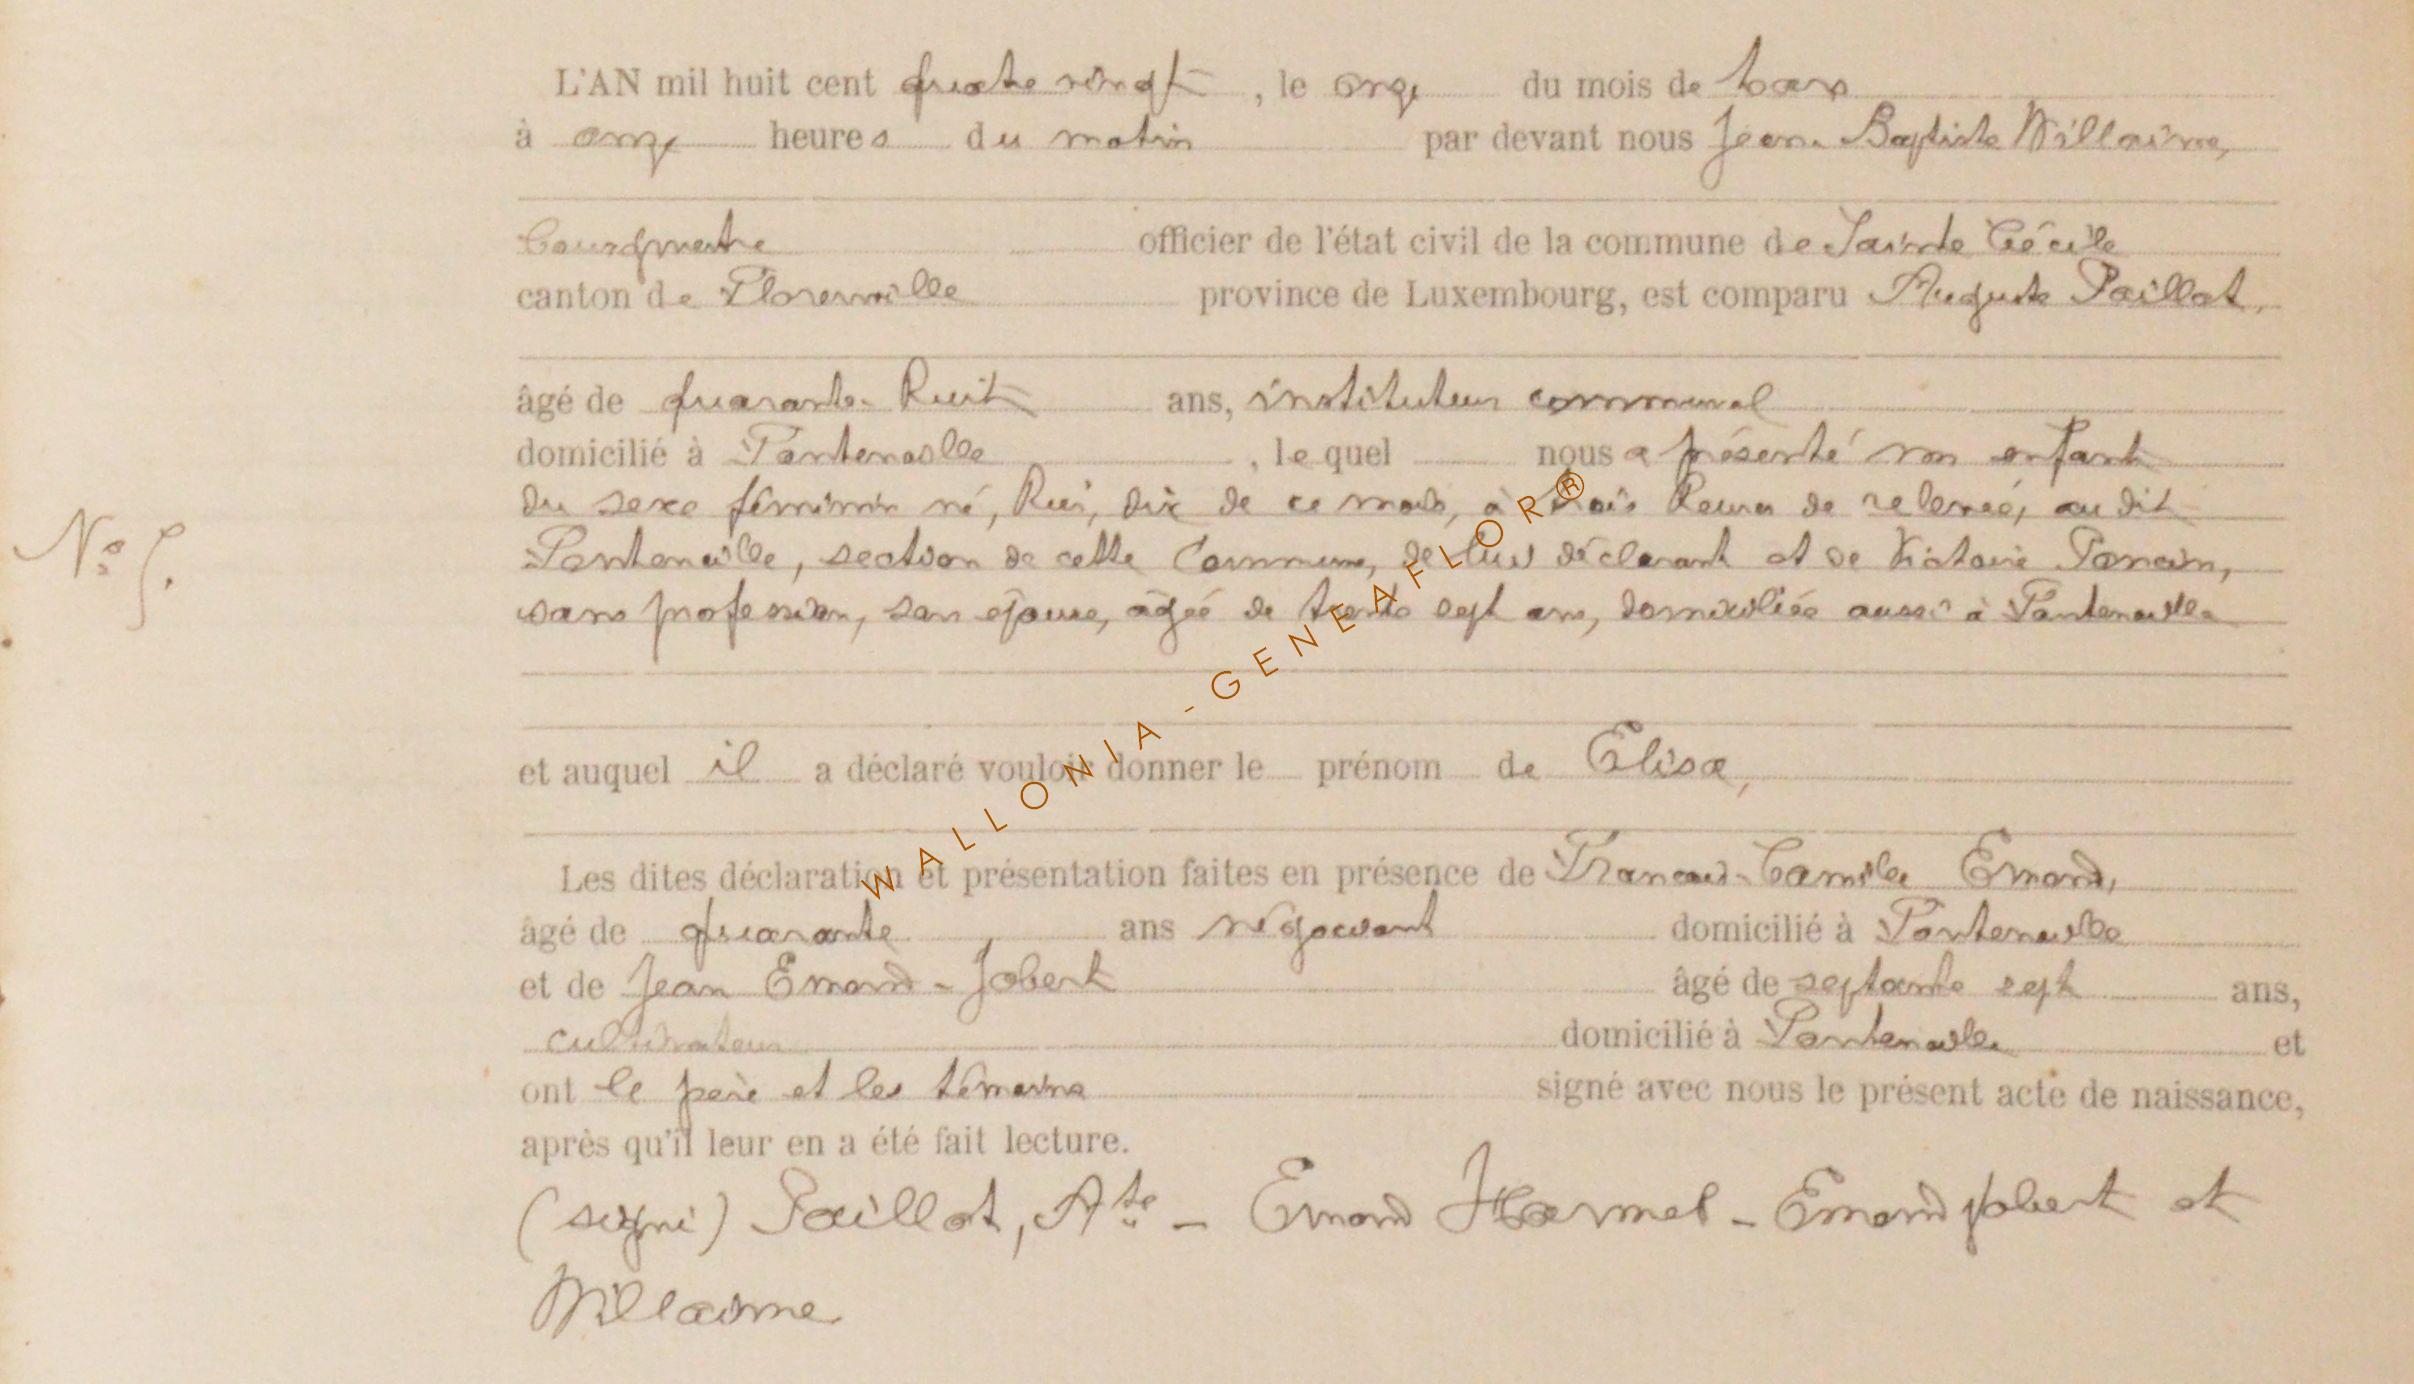 L'AN mil huit cent quatre vingt, le onze du mois de mars
à onze heures du matin par devant nous Jean-Baptiste Willaime,
bourgmestre officier de l'état civil de la commune de Sainte Cécile
canton de Florenville province de Luxembourg, est comparu Auguste Paillot,
âgé de quarante-huit ans, instituteur communal
domicilié à Fontenoille, le quel nous a présenté un enfant
du sexe féminin né, hier, dix de ce mois, à trois heures de relevée, au dit
Fontenoille, section de cette Commune, de lui déclarant et de Victoire Poncin,
N° 5.
sans profession, son épouse, âgée de trente sept ans, domiciliée aussi à Fontenoille
et auquel il a déclaré vouloir donner le prénom de Elisa,
Les dites déclaration et présentation faites en présence de François-Camille Emond,
âgé de quarante ans négociant domicilié à Fontenoille
et de Jean Emond-Jobert âgé de septante sept ans,
cultivateur domicilié à Fontenoille et
ont le père et les témoins signé avec nous le présent acte de naissance,
après qu'il leur en a été fait lecture.
(signé) Paillot, Ate - Emond Hormel - Emond Jobert et
Willaime
WALLONIA-GENEAFLOR®